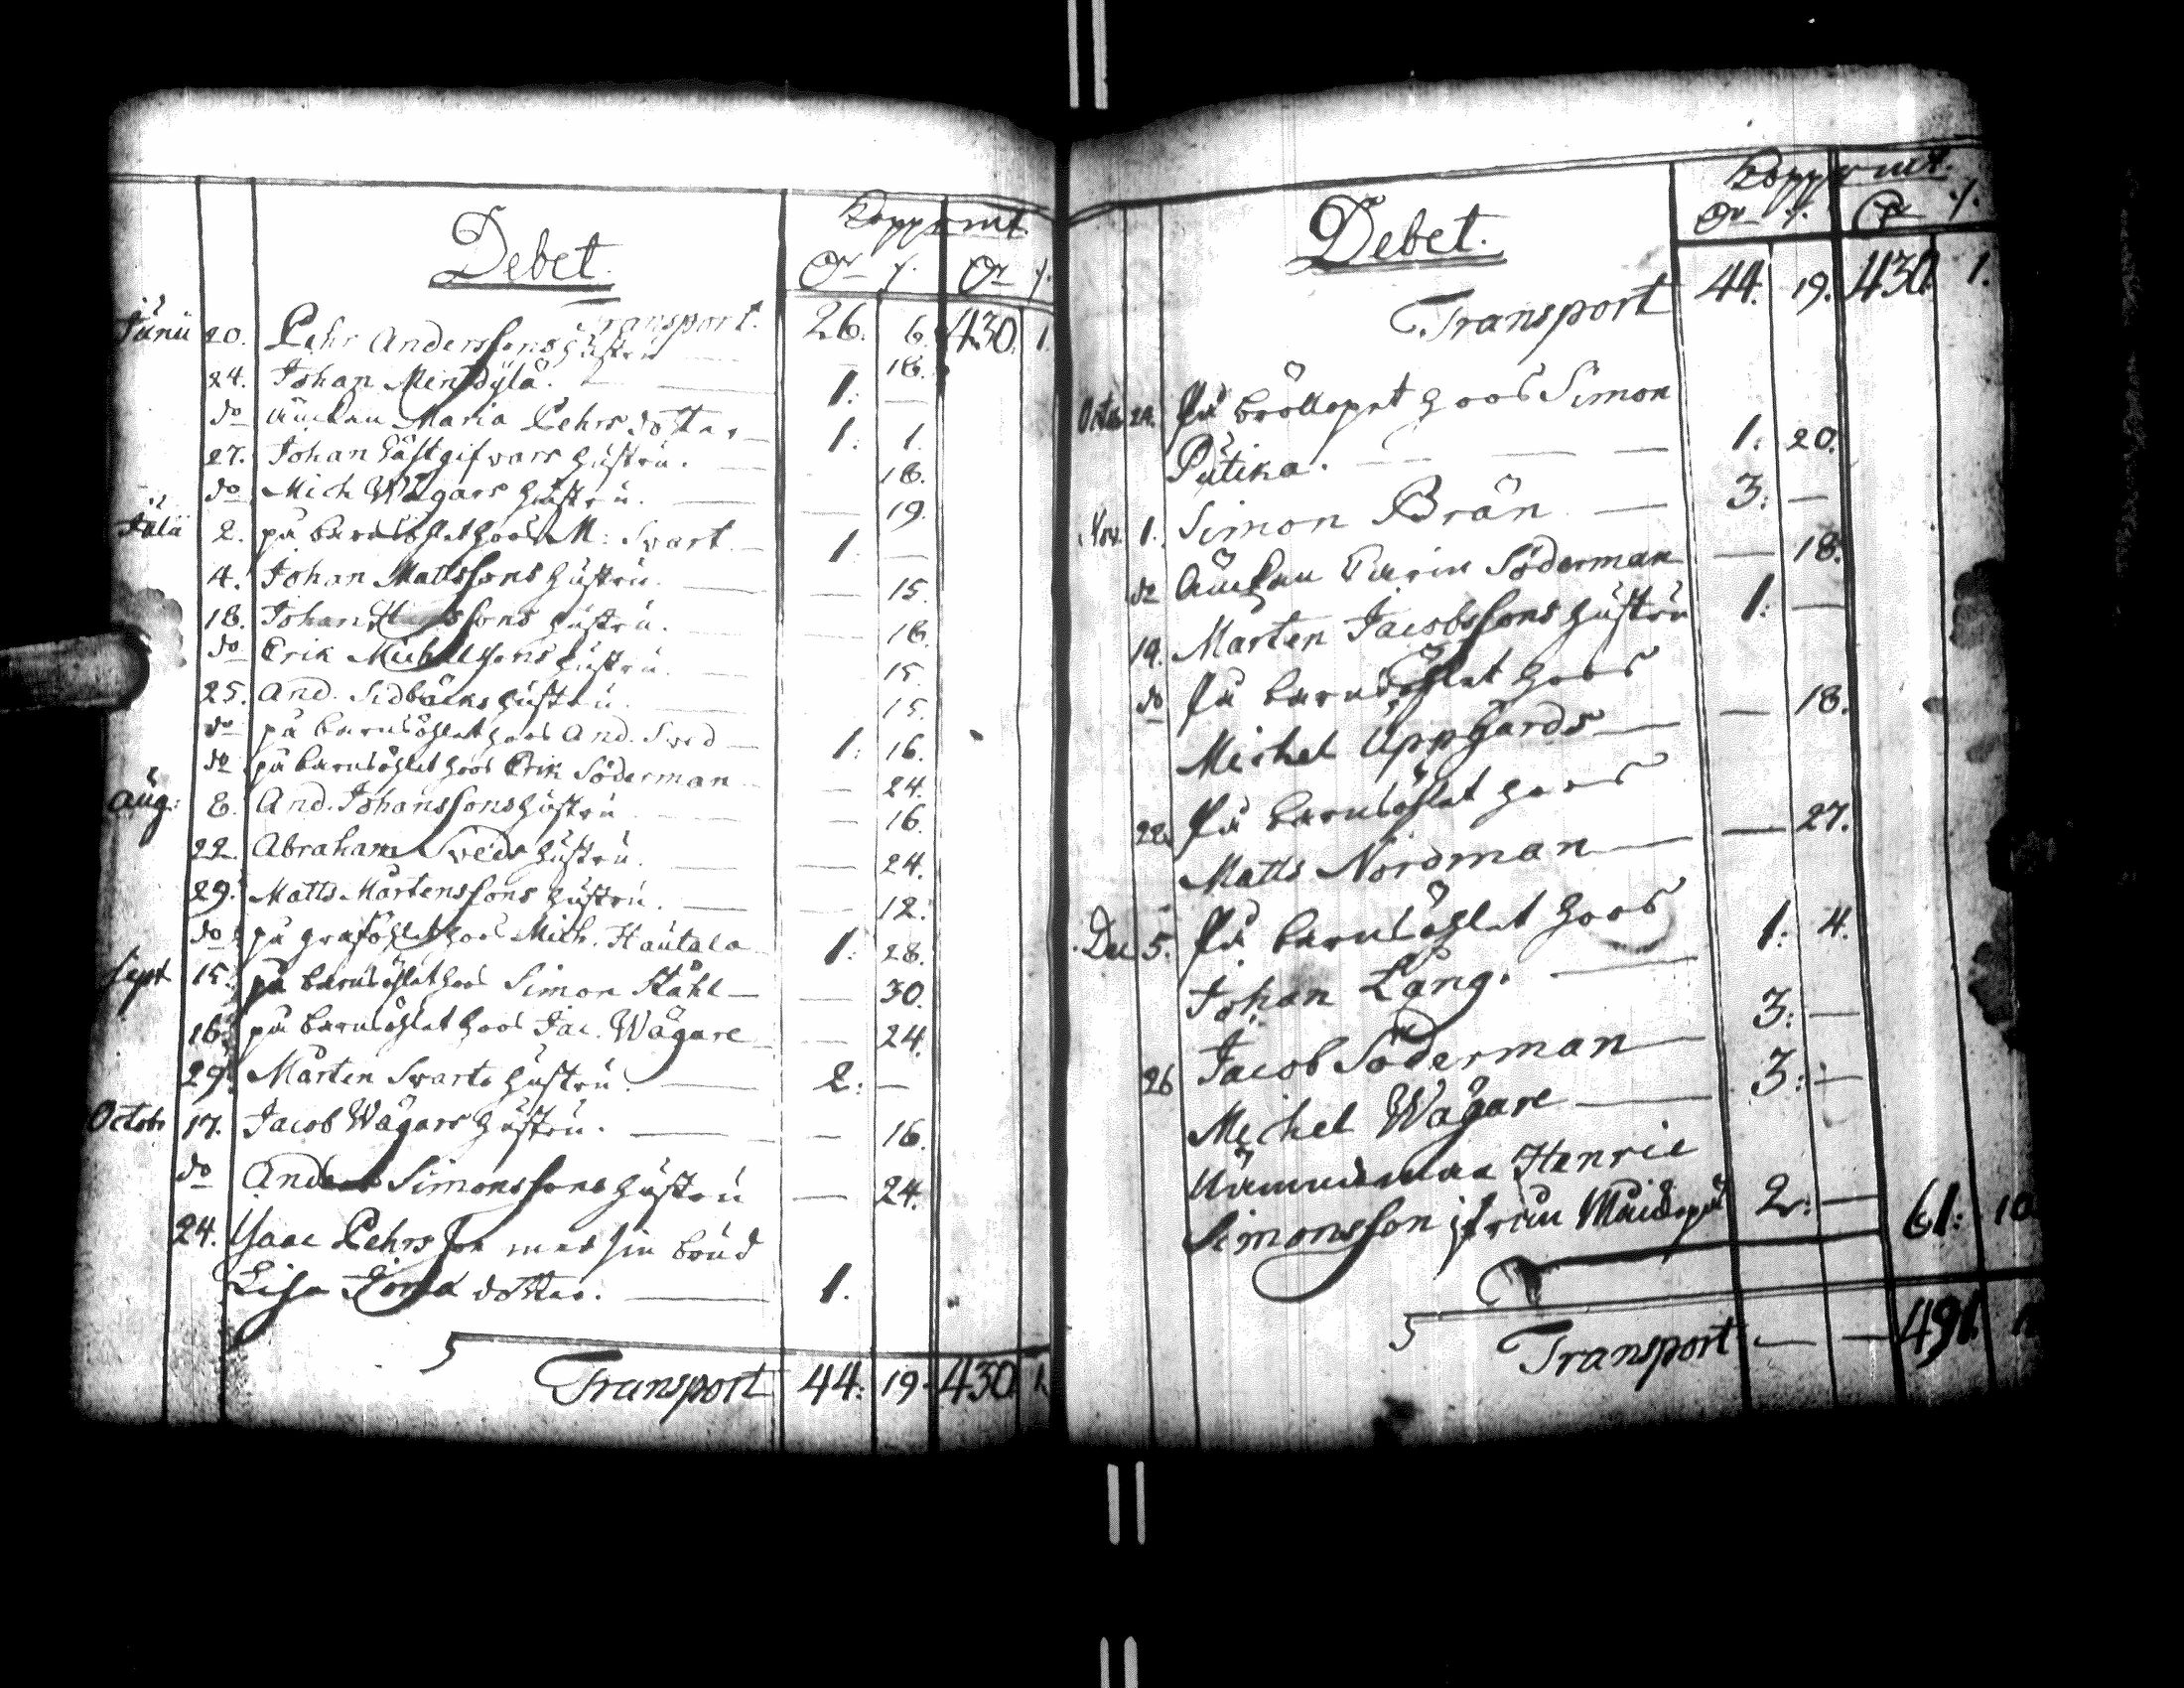 Koppmt.
Debet.
Or / Or /.
Transport. 26. 6. 430. 1.
Junii 20. Pehr Anderssons hustru 18.
24. Johan Mentylä. 1. —
do änckan Maria Pehrsdotter — 1. 1.
27. Johan Gästgifvars hustru. — 18.
do Mich Wägars hustru. — 19.
Julii 2. på barnsöhlet hoos M: Svart. — 1. —
4. Johan Mattssons hustru. — 15.
18. Johan hustru. — 18.
do Erik Michelssons hustru. — 15.
25. And. Sidbäcks hustru. — 15.
do på barnsöhlet hoos And. Sved — 1. 16.
do på barnsöhlet hoos Erik Söderman — 24.
Aug: 8. And. Johanssons hustru — 16.
22. Abraham Sveds hustru. — 24.
29. Matts Mårtenssons hustru. — 12.
do på graföhlet hoos Mich. Hautala 1. 28.
Sept 15. på barnsöhlet hoos Simon Ståhl — 30.
16. på barnsöhlet hoos Jac. Wägare — 24.
29. Mårten Svarts hustru. — 2: —
Octob 17. Jacob Wägars hustru. — 16.
do Anders Simonssons hustru — 24.
24. Isaac Pehrsson med sin brud
Lisa dotter. — 1.
Transport 44: 19. 430. 1.
Koppmt.
Debet.
Or /. Or /.
Transport 44. 19. 430. 1.
Octob 24. På bröllopet hoos Simon
Putika. — 1. 20.
Nov. 1. Simon Brän — 3: —
do Änckan Carin Söderman — 18.
19. Mårten Jacobssons hustru 1: —
do På barnsöhlet hoos
Michel Uppgårds — 18.
22. På barnsöhlet hoos
Matts Nordman — 27.
Dec 5. På barnsöhlet hoos
Johan Lång. — 1: 4.
26 Jacob Söderman — 3: —
Michel Wägare — 3: —
Nämndeman Henric
Simonsson 2: — 61: 10
Transport — — 491.